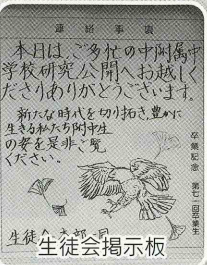 連絡事項
本日は、ご多忙の中附属中
学校研究公開へお越しく
ださりありがとうございます。
新たな時代を切り拓き、豊かに
生きる私たち附中生
の姿を是非ご覧
ください。
生徒会本部一同
卒業記念 第七一回卒業生
生徒会掲示板